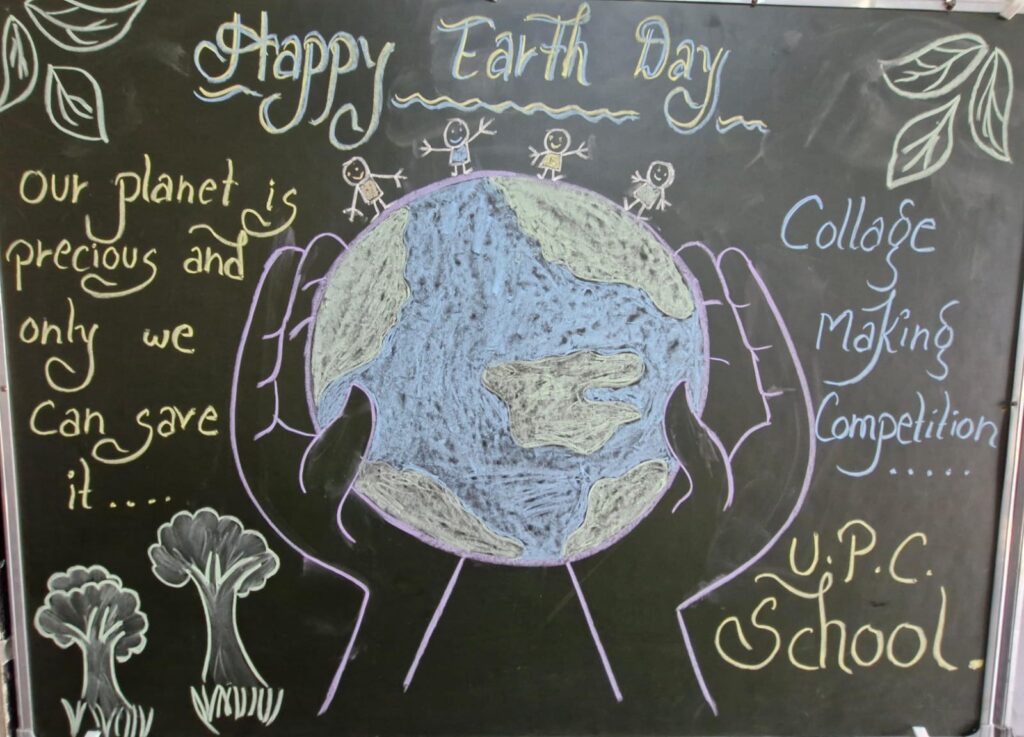 Happy Earth Day
Our planet is
precious and
only we
Can save
it....
Collage
Making
Competition
.....
U.P.C.
School.